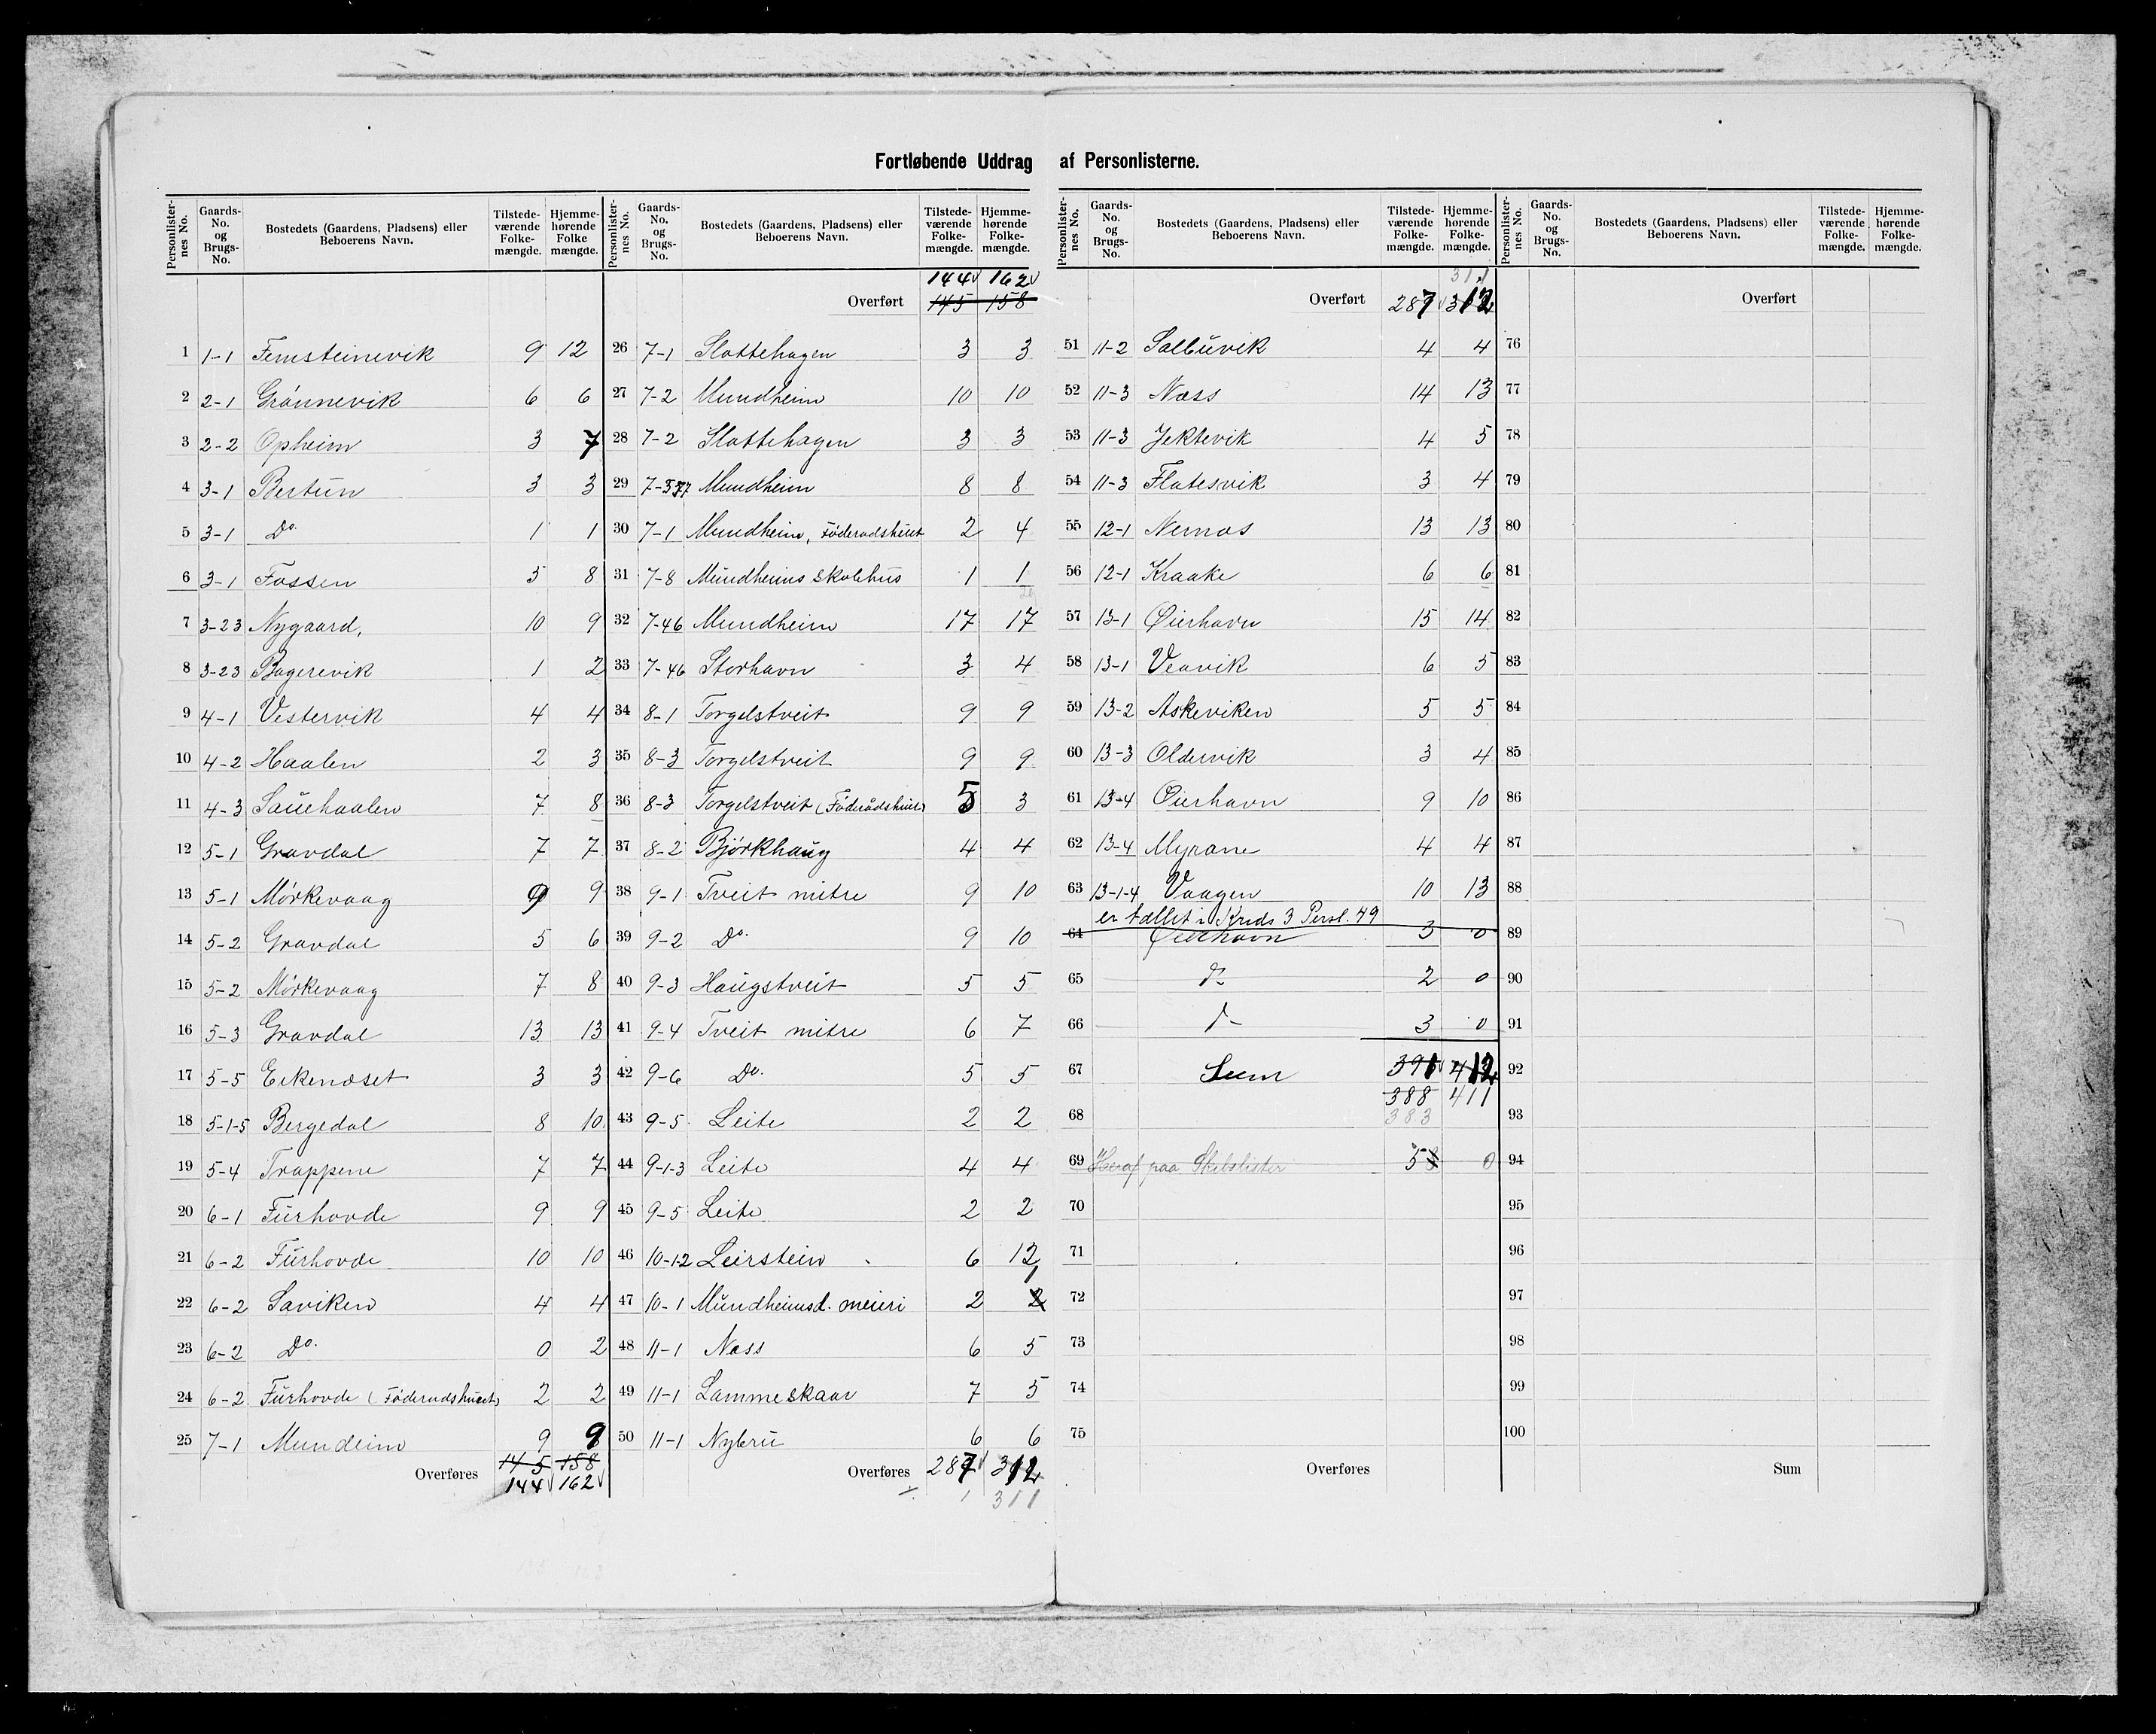 Fortløbende Uddrag af Personlisterne.
Personlisternes No. Gaards-No. og Brugs-No. Bostedets (Gaardens, Pladsens) eller Beboerens Navn. Tilstedeværende Folkemængde. Hjemmehørende Folkemængde.
1 1-1 Femsteinevik 9 12
2 2-1 Grønnevik 6 6
3 2-2 Opheim 3 7
4 3-1 Bertun 3 3
5 3-1 Do. 1 1
6 3-1 Fossen 5 8
7 3-23 Nygaard, 10 9
8 3-23 Bagerevik 1 2
9 4-1 Vestervik 4 4
10 4-2 Haalen 2 3
11 4-3 Sauehaalen 7 8
12 5-1 Gravdal 7 7
13 5-1 Mørkevaag 9 9
14 5-2 Gravdal 5 6
15 5-2 Mørkevaag 7 8
16 5-3 Gravdal 13 13
17 5-5 Eikenæset 3 3
18 5-1-5 Bergedal 8 10
19 5-4 Trappene 7 7
20 6-1 Furhovde 9 9
21 6-2 Furhovde 10 10
22 6-2 Saviken 4 4
23 6-2 Do. 0 2
24 6-2 Furhovde (Føderadshuset) 2 2
25 7-1 Mundeim 9 9
145 158
Overføres 144 162
144 162
Overført 145 158
26 7-1 Slottehagen 3 3
27 7-2 Mundheim 10 10
28 7-2 Slottehagen 3 3
29 Mundheim 8 8
30 7-1 Mundheim, Føderadshuset 2 4
31 7-8 Mundheims skolehus 1 1
32 7-46 Mundheim 17 17
33 7-46 Storhavn 3 4
34 8-1 Torgelstveit 9 9
35 8-3 Torgelstveit 9 9
36 8-3 Torgelstveit (Føderådshuset) 5 3
37 8-2 Bjørkhaug 4 4
38 9-1 Tveit mitre 9 10
39 9-2 Do. 9 10
40 9-3 Haugstveit 5 5
41 9-4 Tveit mitre 6 7
42 9-6 Do. 5 5
43 9-5 Leite 2 2
44 9-1-3 Leite 4 4
45 9-5 Leite 2 2
46 10-1-2 Leirstein 6 12
47 10-1 Mundheimsd. meieri 2 2 1
48 11-1 Næss 6 5
49 11-1 Lammeskaar 7 5
50 11-1 Nybru 6 6
Overføres 287 312
1 311
311
Overført 287 312
51 11-2 Salbuvik 4 4
52 11-3 Næss 14 13
53 11-3 Jektevik 4 5
54 11-3 Flatesvik 3 4
55 12-1 Nernæs 13 13
56 12-1 Kraake 6 6
57 13-1 Øierhavn 15 14
58 13-1 Veavik 6 5
59 13-2 Askeviken 5 5
60 13-3 Oldervik 3 4
61 13-4 Øierhavn 9 10
62 13-4 Myrane 4 4
63 13-1-4 Vaagen 10 13
er tællet i Kreds 3 Persl. 49
64 Øierhavn 3 0
65 do 2 0
66 do 3 0
67 Sum 391 412
388 411
68 383
69 Heraf paa Skibslister 5 8 0
70
71
72
73
74
75
Overføres
Overført
76
77
78
79
80
81
82
83
84
85
86
87
88
89
90
91
92
93
94
95
96
97
98
99
100
Sum